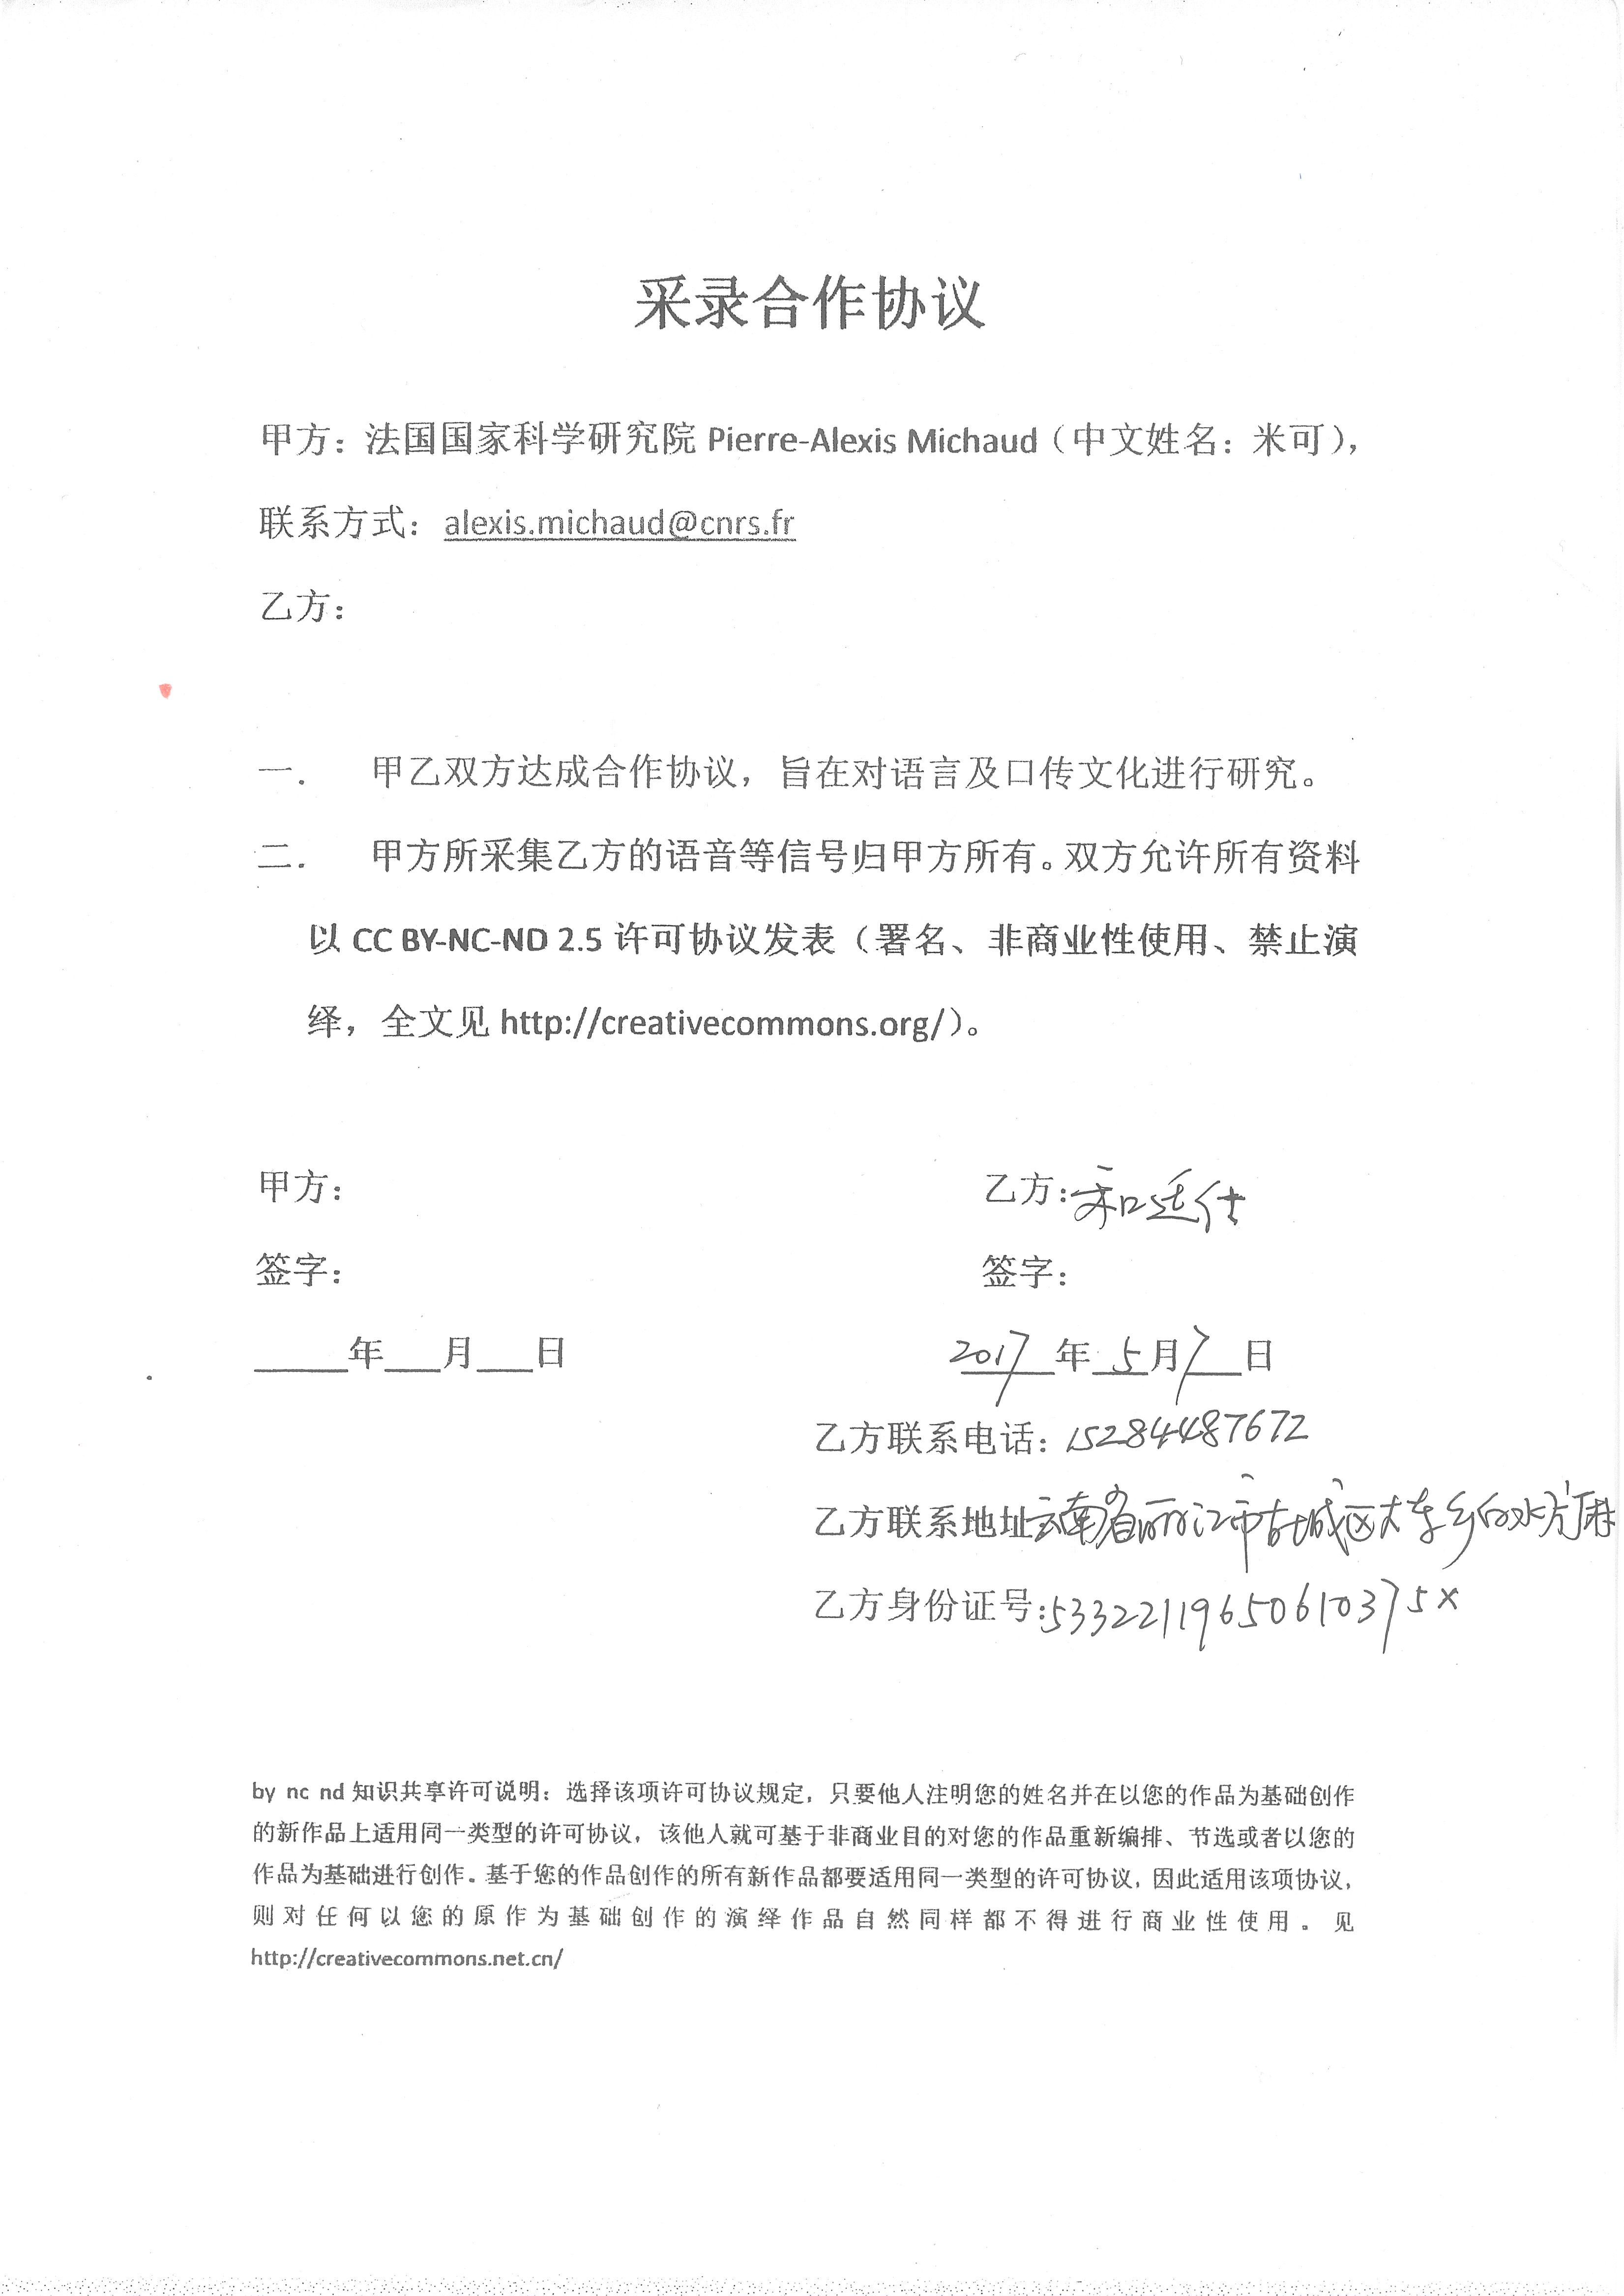 采录合作协议
甲方：法国国家科学研究院 Pierre-Alexis Michaud（中文姓名：米可），
联系方式：alexis.michaud@cnrs.fr
乙方：
一．　甲乙双方达成合作协议，旨在对语言及口传文化进行研究。
二．　甲方所采集乙方的语音等信号归甲方所有。双方允许所有资料
以 CC BY-NC-ND 2.5 许可协议发表（署名、非商业性使用、禁止演
绎，全文见 http://creativecommons.org/）。
甲方：　乙方:和廷仕
签字：　签字：
_____年___月___日　2017年 5月7日
乙方联系电话：15284487672
乙方联系地址云南省丽江市古城区大东乡白水
乙方身份证号:53322119650610375X
by nc nd 知识共享许可说明：选择该项许可协议规定，只要他人注明您的姓名并在以您的作品为基础创作
的新作品上适用同一类型的许可协议，该他人就可基于非商业目的对您的作品重新编排、节选或者以您的
作品为基础进行创作。基于您的作品创作的所有新作品都要适用同一类型的许可协议，因此适用该项协议，
则对任何以您的原作为基础创作的演绎作品自然同样都不得进行商业性使用。见
http://creativecommons.net.cn/